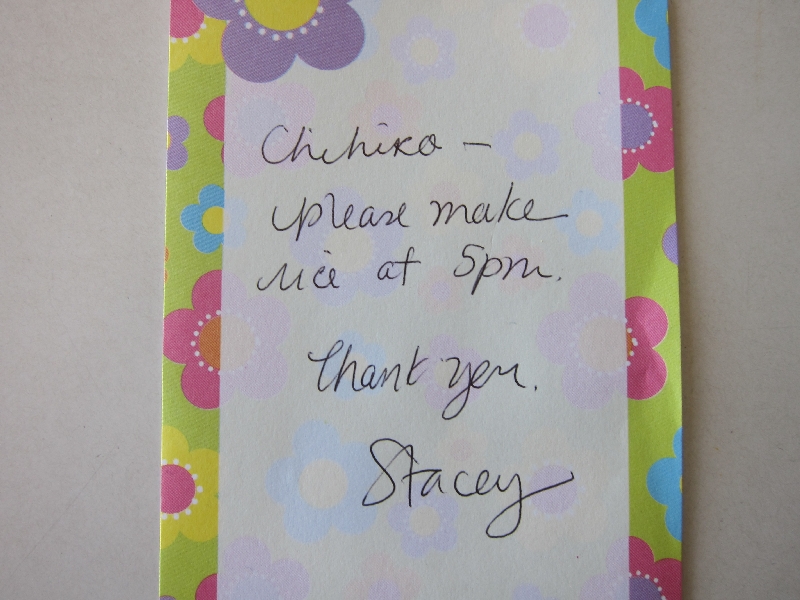 Chihiro –
please make
rice at 5pm.
Thank you.
Stacey